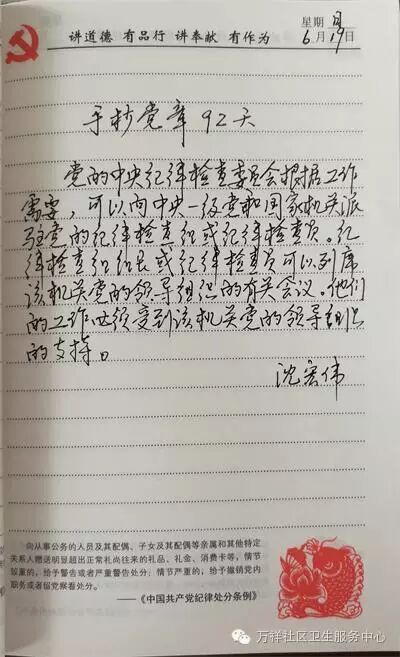 星期日
讲道德 有品行 讲奉献 有作为
6月19日
手抄党章92天
党的中央纪律检查委员会根据工作
需要,可以向中央一级党和国家机关派
驻党的纪律检查组或纪律检查员。纪
律检查组组长或纪律检查员可以列席
该机关党的领导组织的有关会议。他们
的工作必须受到该机关党的领导组织
的支持。
沈宏伟
向从事公务的人员及其配偶、子女及其配偶等亲属和其他特定
关系人赠送明显超出正常礼尚往来的礼品、礼金、消费卡等,情节
较重的,给予警告或者严重警告处分;情节严重的,给予撤销党内
职务或者留党察看处分。
——《中国共产党纪律处分条例》
万祥社区卫生服务中心